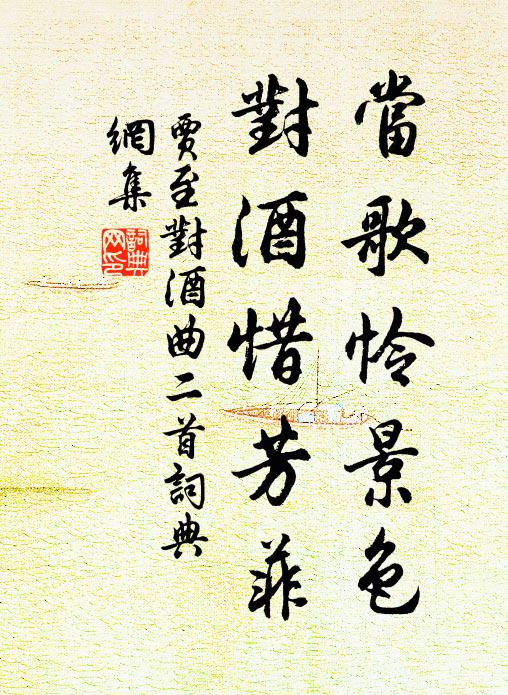 當歌怜景色
對酒惜芳菲
賈至對酒曲二首詞典
網集
詞典网印